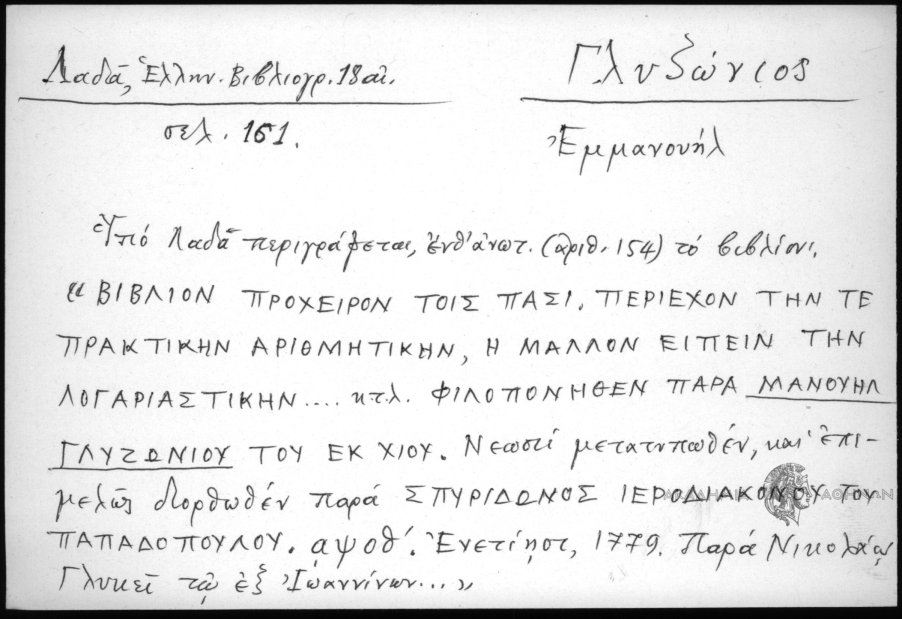 Λαδᾶ, Ἑλλην. Βιβλιογρ. 18 αἰ.
σελ. 161.
Γλυζώνιος
Ἐμμανουήλ
Ὑπό Λαδᾶ περιγράφεται, ἔνθ' ἀνωτ. (ἀριθ. 154) τό βιβλίον:
«ΒΙΒΛΙΟΝ ΠΡΟΧΕΙΡΟΝ ΤΟΙΣ ΠΑΣΙ. ΠΕΡΙΕΧΟΝ ΤΗΝ ΤΕ
ΠΡΑΚΤΙΚΗΝ ΑΡΙΘΜΗΤΙΚΗΝ, Η ΜΑΛΛΟΝ ΕΙΠΕΙΝ ΤΗΝ
ΛΟΓΑΡΙΑΣΤΙΚΗΝ.... κτλ. ΦΙΛΟΠΟΝΗΘΕΝ ΠΑΡΑ ΜΑΝΟΥΗΛ
ΓΛΥΖΩΝΙΟΥ ΤΟΥ ΕΚ ΧΙΟΥ. Νεωστί μετατυπωθέν, καί ἐπι-
μελῶς διορθωθέν παρά ΣΠΥΡΙΔΩΝΟΣ ΙΕΡΟΔΙΑΚΟΝΟΥ ΤΟΥ
ΠΑΠΑΔΟΠΟΥΛΟΥ. αψοθ'. Ἐνετίῃσι, 1779. Παρά Νικολάῳ
Γλυκεῖ τῷ ἐξ Ἰωαννίνων...»
ΑΚΑΔΗΜΙΑ ΑΘΗΝΩΝ